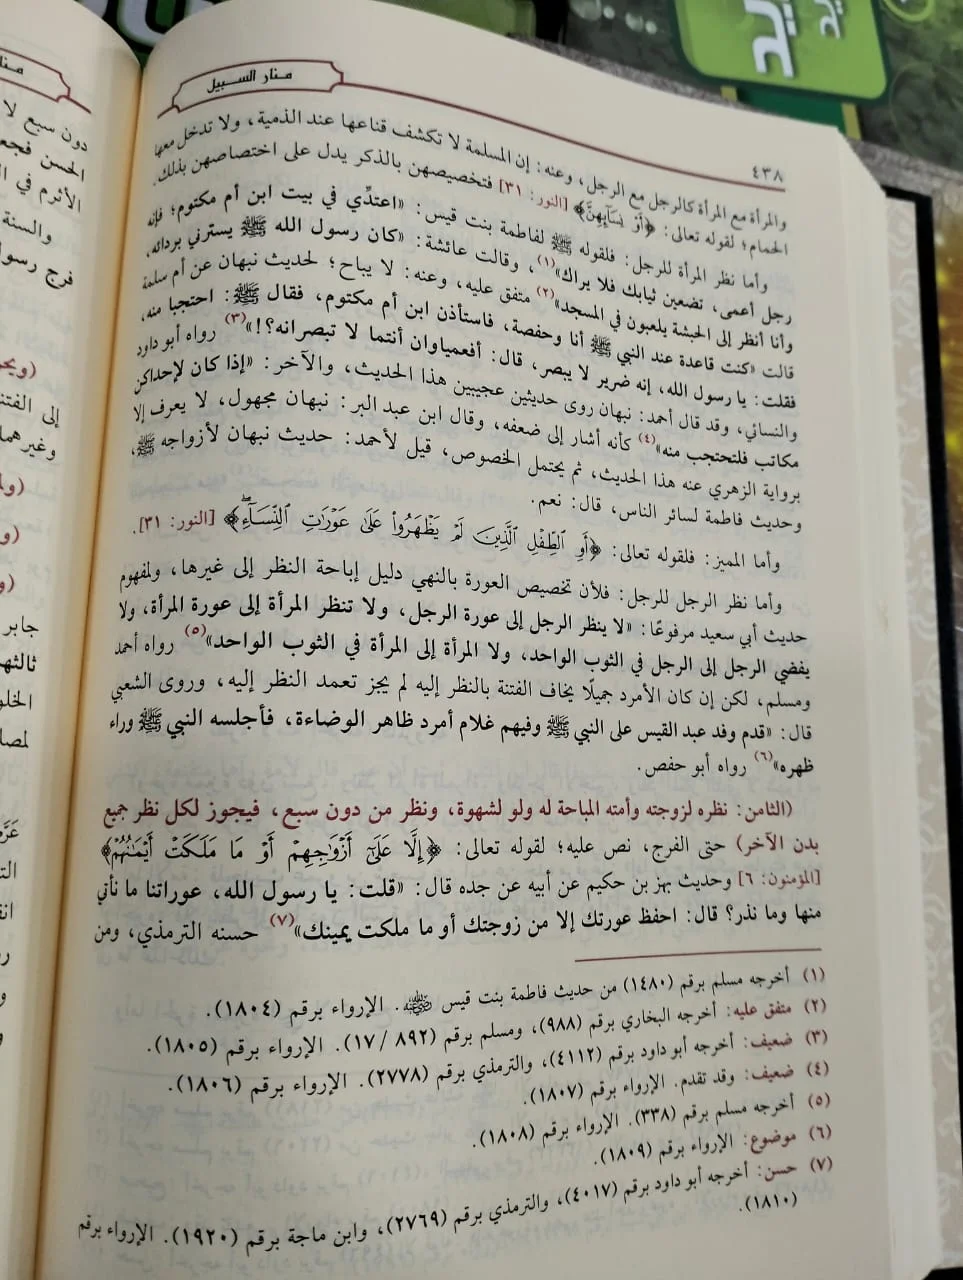 منار السبيل
٤٣٨
والمرأة مع المرأة كالرجل مع الرجل، وعنه: إن المسلمة لا تكشف قناعها عند الذمية، ولا تدخل معها
الحمام؛ لقوله تعالى: ﴿أَوْ نِسَآئِهِنَّ﴾ [النور: ٣١] فتخصيصهن بالذكر يدل على اختصاصهن بذلك.
وأما نظر المرأة للرجل: فلقوله ﷺ لفاطمة بنت قيس: «اعتدِّي في بيت ابن أم مكتوم؛ فإنه
رجل أعمى، تضعين ثيابك فلا يراك»(١)، وقالت عائشة: «كان رسول الله ﷺ يسترني بردائه،
وأنا أنظر إلى الحبشة يلعبون في المسجد»(٢) متفق عليه، وعنه: لا يباح؛ لحديث نبهان عن أم سلمة
قالت «كنت قاعدة عند النبي ﷺ أنا وحفصة، فاستأذن ابن أم مكتوم، فقال ﷺ: احتجبا منه،
فقلت: يا رسول الله، إنه ضرير لا يبصر، قال: أفعمياوان أنتما لا تبصرانه؟!»(٣) رواه أبو داود
والنسائي، وقد قال أحمد: نبهان روى حديثين عجيبين هذا الحديث، والآخر: «إذا كان لإحداكن
مكاتب فلتحتجب منه»(٤) كأنه أشار إلى ضعفه، وقال ابن عبد البر: نبهان مجهول، لا يعرف إلا
برواية الزهري عنه هذا الحديث، ثم يحتمل الخصوص، قيل لأحمد: حديث نبهان لأزواجه ﷺ،
وحديث فاطمة لسائر الناس، قال: نعم.
وأما المميز: فلقوله تعالى: ﴿أَوِ ٱلطِّفْلِ ٱلَّذِينَ لَمْ يَظْهَرُواْ عَلَىٰ عَوْرَٰتِ ٱلنِّسَآءِ﴾ [النور: ٣١].
وأما نظر الرجل للرجل: فلأن تخصيص العورة بالنهي دليل إباحة النظر إلى غيرها، ولمفهوم
حديث أبي سعيد مرفوعًا: «لا ينظر الرجل إلى عورة الرجل، ولا تنظر المرأة إلى عورة المرأة، ولا
يفضي الرجل إلى الرجل في الثوب الواحد، ولا المرأة إلى المرأة في الثوب الواحد»(٥) رواه أحمد
ومسلم، لكن إن كان الأمرد جميلًا يخاف الفتنة بالنظر إليه لم يجز تعمد النظر إليه، وروى الشعبي
قال: «قدم وفد عبد القيس على النبي ﷺ وفيهم غلام أمرد ظاهر الوضاءة، فأجلسه النبي ﷺ وراء
ظهره»(٦) رواه أبو حفص.
(الثامن: نظره لزوجته وأمته المباحة له ولو لشهوة، ونظر من دون سبع، فيجوز لكل نظر جميع
بدن الآخر) حتى الفرج، نص عليه؛ لقوله تعالى: ﴿إِلَّا عَلَىٰٓ أَزْوَٰجِهِمْ أَوْ مَا مَلَكَتْ أَيْمَٰنُهُمْ﴾
[المؤمنون: ٦] وحديث بهز بن حكيم عن أبيه عن جده قال: «قلت: يا رسول الله، عوراتنا ما نأتي
منها وما نذر؟ قال: احفظ عورتك إلا من زوجتك أو ما ملكت يمينك»(٧) حسنه الترمذي، ومن
(١) أخرجه مسلم برقم (١٤٨٠) من حديث فاطمة بنت قيس. الإرواء برقم (١٨٠٤).
(٢) متفق عليه: أخرجه البخاري برقم (٩٨٨)، ومسلم برقم (٨٩٢/ ١٧). الإرواء برقم (١٨٠٥).
(٣) ضعيف: أخرجه أبو داود برقم (٤١١٢)، والترمذي برقم (٢٧٧٨). الإرواء برقم (١٨٠٦).
(٤) ضعيف: وقد تقدم. الإرواء برقم (١٨٠٧).
(٥) أخرجه مسلم برقم (٣٣٨). الإرواء برقم (١٨٠٨).
(٦) موضوع: الإرواء برقم (١٨٠٩).
(٧) حسن: أخرجه أبو داود برقم (٤٠١٧)، والترمذي برقم (٢٧٦٩)، وابن ماجة برقم (١٩٢٠). الإرواء برقم
(١٨١٠).
دون سبع لا
الأثرم في
والسنة
فرج رسول
إلى الفتن
وغيرهما
جابر